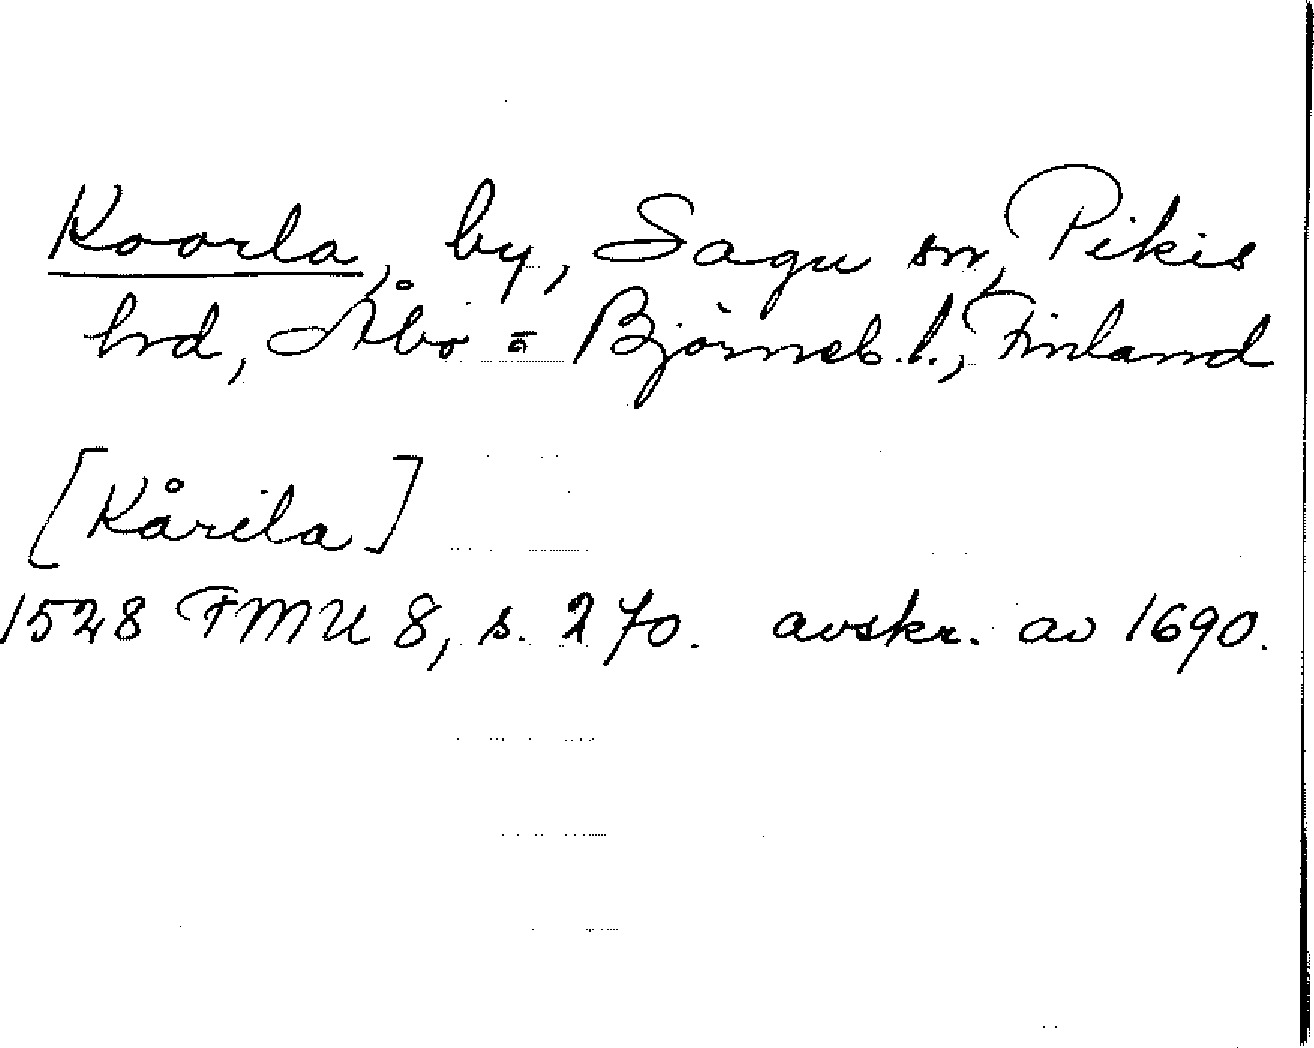 Koorla, by, Sagu sn, Pikis
hrd, Åbo = Björneb. l., Finland
[Kårila]
1528 FMU 8, s. 270. avskr. av 1690.